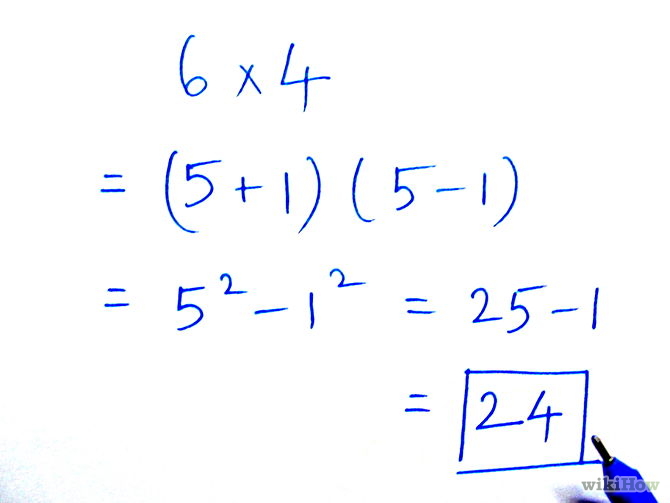 6 × 4
= (5 + 1) (5 − 1)
= 5² − 1² = 25 − 1
= 24
wikiHow